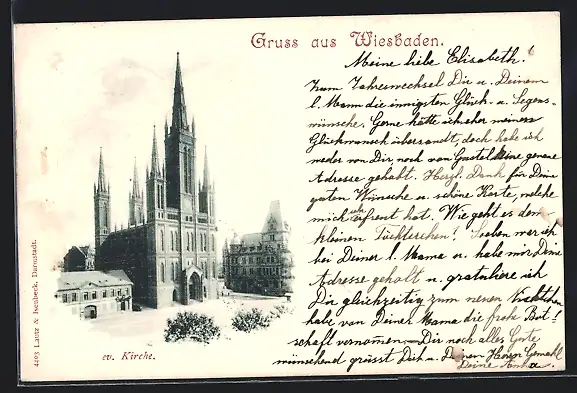 Gruss aus Wiesbaden.
Meine liebe Elisabeth!
Zum Jahreswechsel Dir u. Deinem
l. Mann die innigsten Glück- u. Segens-
wünsche. Gerne hätte ich eher meinen
Glückwunsch übersandt, doch habe ich
weder von Dir, noch von Gustel keine genaue
Adresse gehabt. Herzl. Dank für Deine
guten Wünsche u. schöne Karte, welche
mich sehr erfreut hat. Wie geht es dem
kleinen Töchterchen? Soeben war ich
bei Deiner l. Mama u. habe mir Deine
Adresse geholt u. gratuliere ich
Dir gleichzeitig zum neuen
habe von Deiner Mama die frohe Bot-
schaft vernommen. Dir noch alles Gute
wünschend grüsst Dich u. Deinen Herrn Gemahl
Deine Anna
ev. Kirche.
4493 Lautz & Isenbeck, Darmstadt.